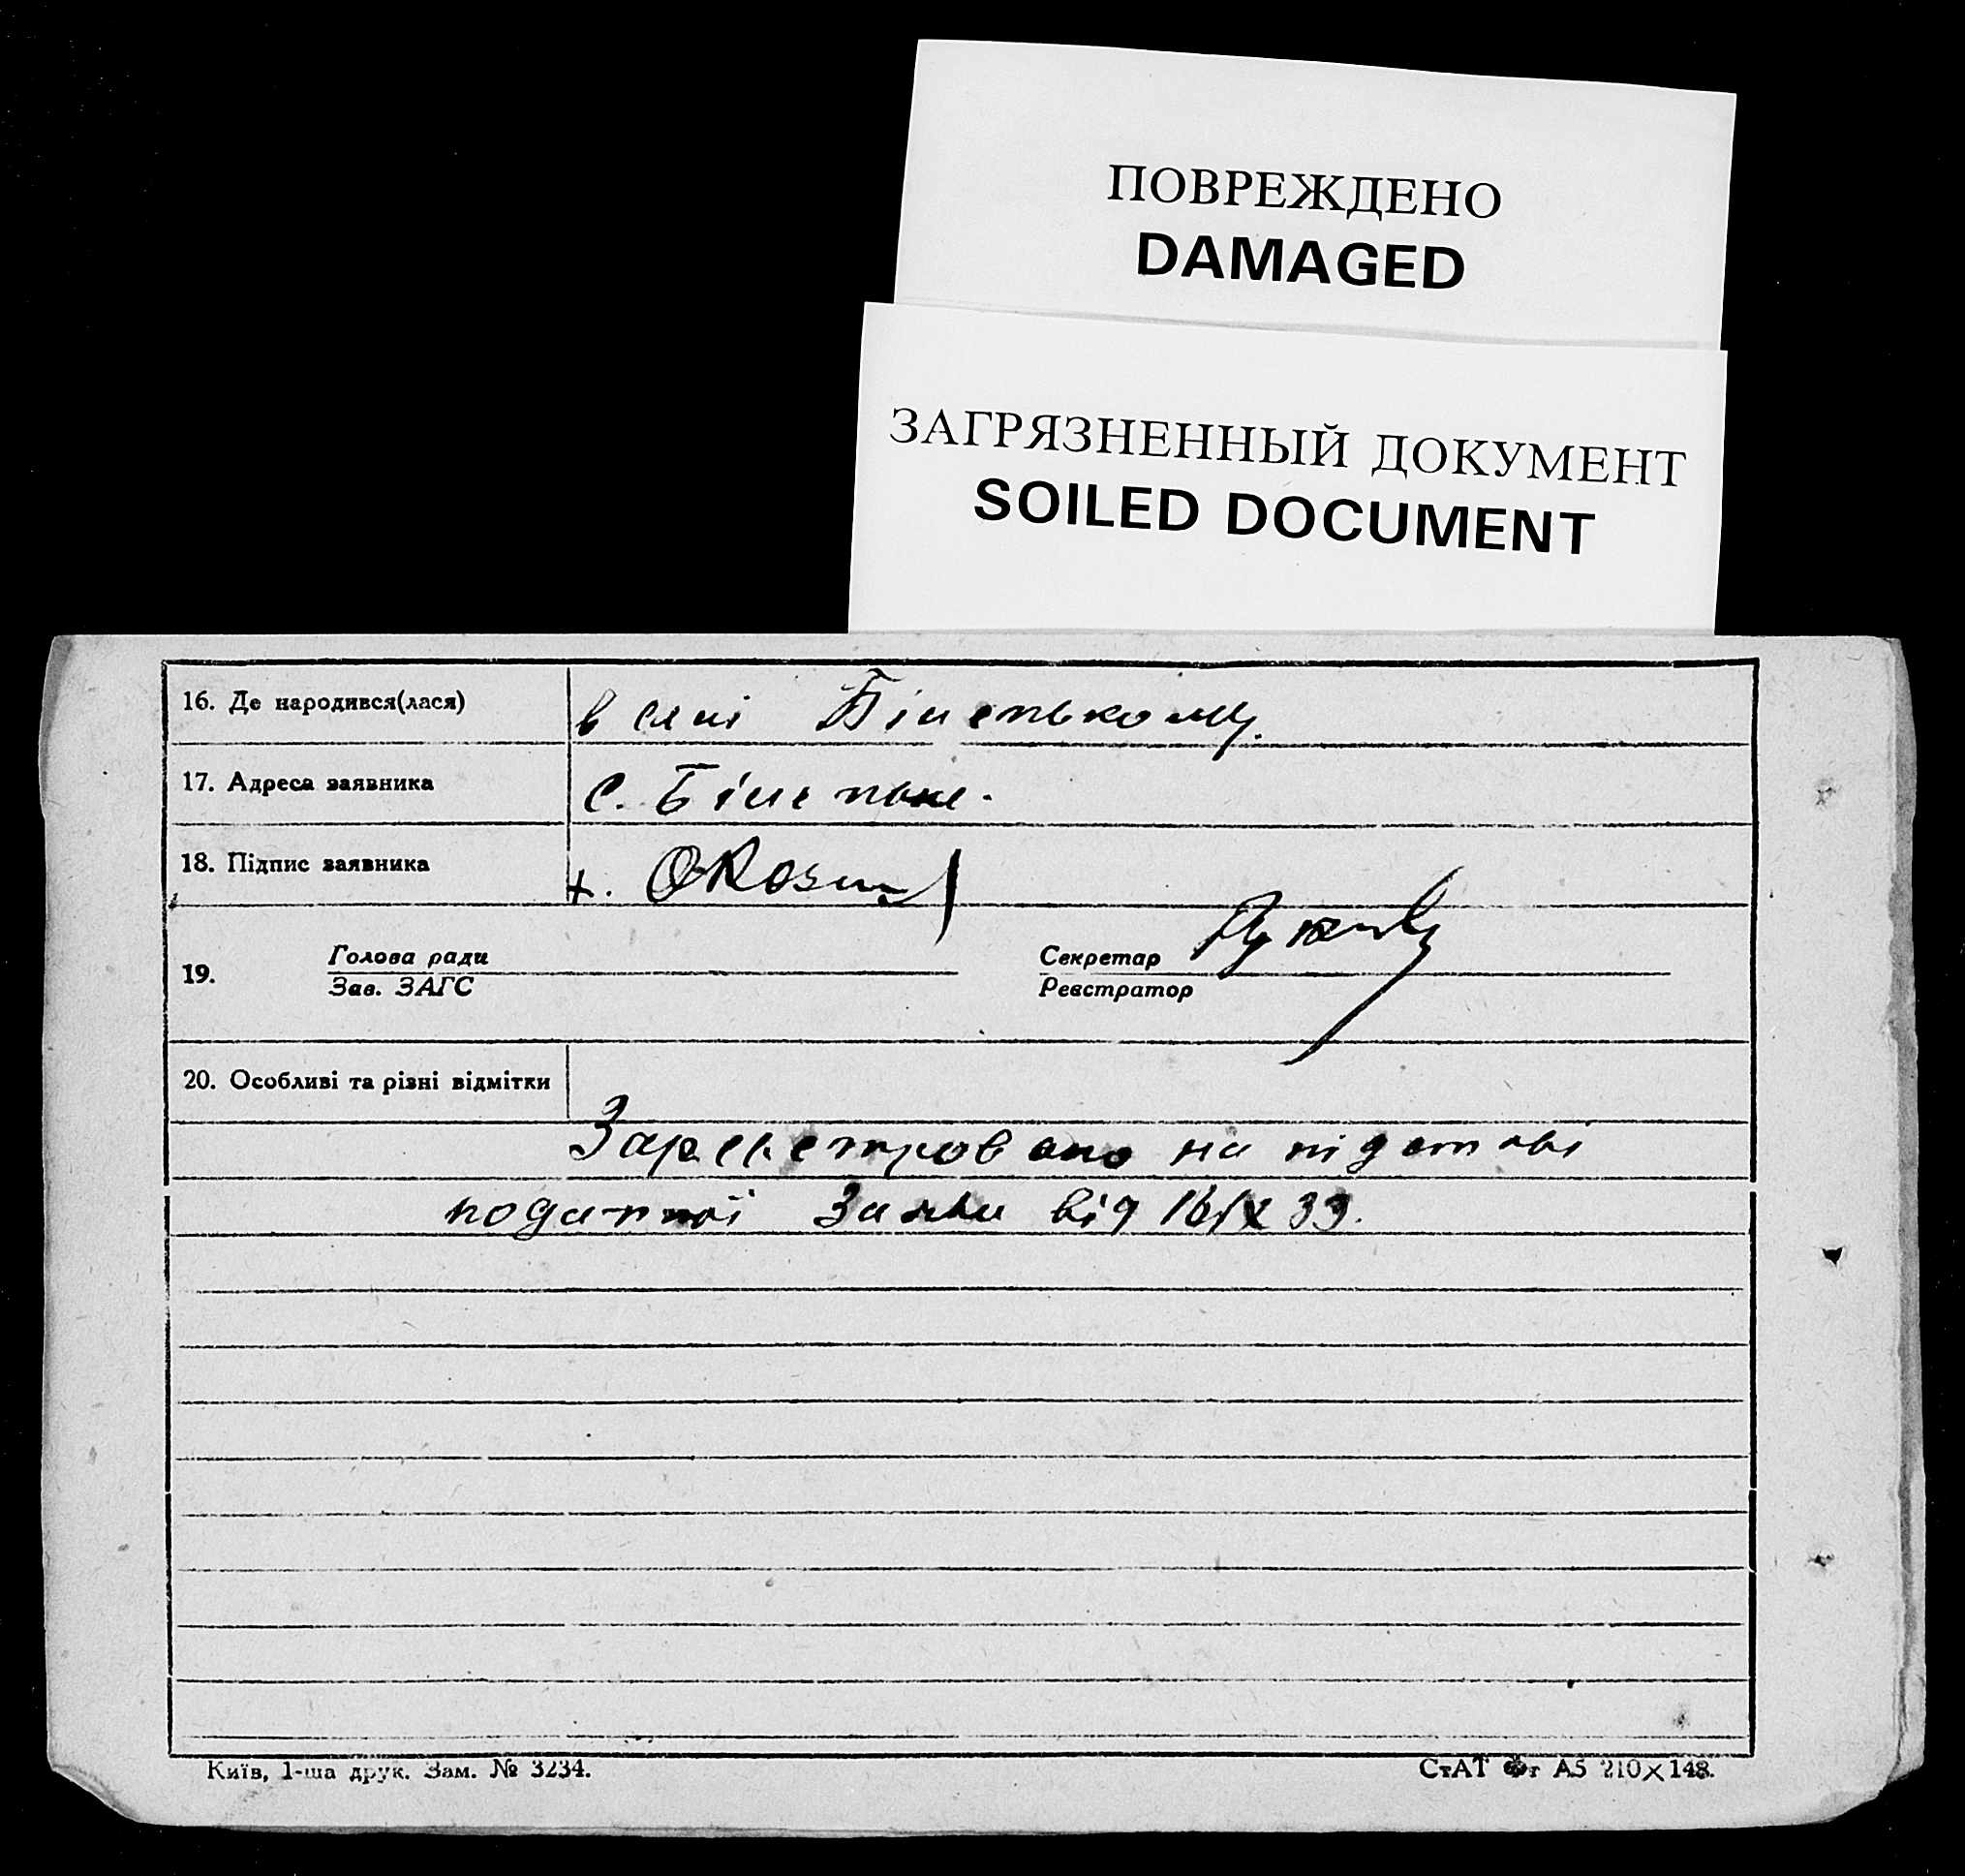 ПОВРЕЖДЕНО
DAMAGED
ЗАГРЯЗНЕННЫЙ ДОКУМЕНТ
SOILED DOCUMENT
16. Де народився(лася) в селі
17. Адреса заявника с.
18. Підпис заявника
19. Голова ради Секретар
Зав. ЗАГС Реєстратор
20. Особливі та різні відмітки
на підставі
поданної Заяви від
Київ, 1-ша друк. Зам. № 3234. СтАТ Фг А5 210×148.